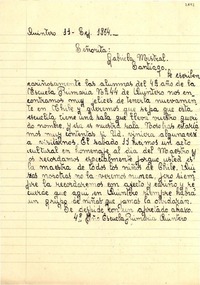 Quintero 11-Sep. 1954.
Señorita:
Gabriela Mistral.
Santiago.
Te escriben
cariñosamente las alumnas del 4º año de la
Escuela Primaria Nº 44 de Quintero nos en-
contramos muy felices de tenerla nuevamen-
te en Chile y queremos que sepa que esta
escuela tiene una sala que lleva nuestro que-
rido nombre, y es nuestra sala. Nosotras estaría-
mos muy contentas si Ud. viniera algunas
a visitarnos. El sabado 11 hemos un acto
cultural en homenaje al día del Maestro y
los recordamos especialmente porque usted es
la maestra de todos los niños de Chile.
nosotras no la veremos nunca, pero siem-
pre la recordaremos con afecto y cariño y re-
cuerde que aquí en Quintero siempre habrá
un grupo de niñas que jamás la olvidarán.
Se despide con un apretado abrazo
4º Año Escuela Quintero